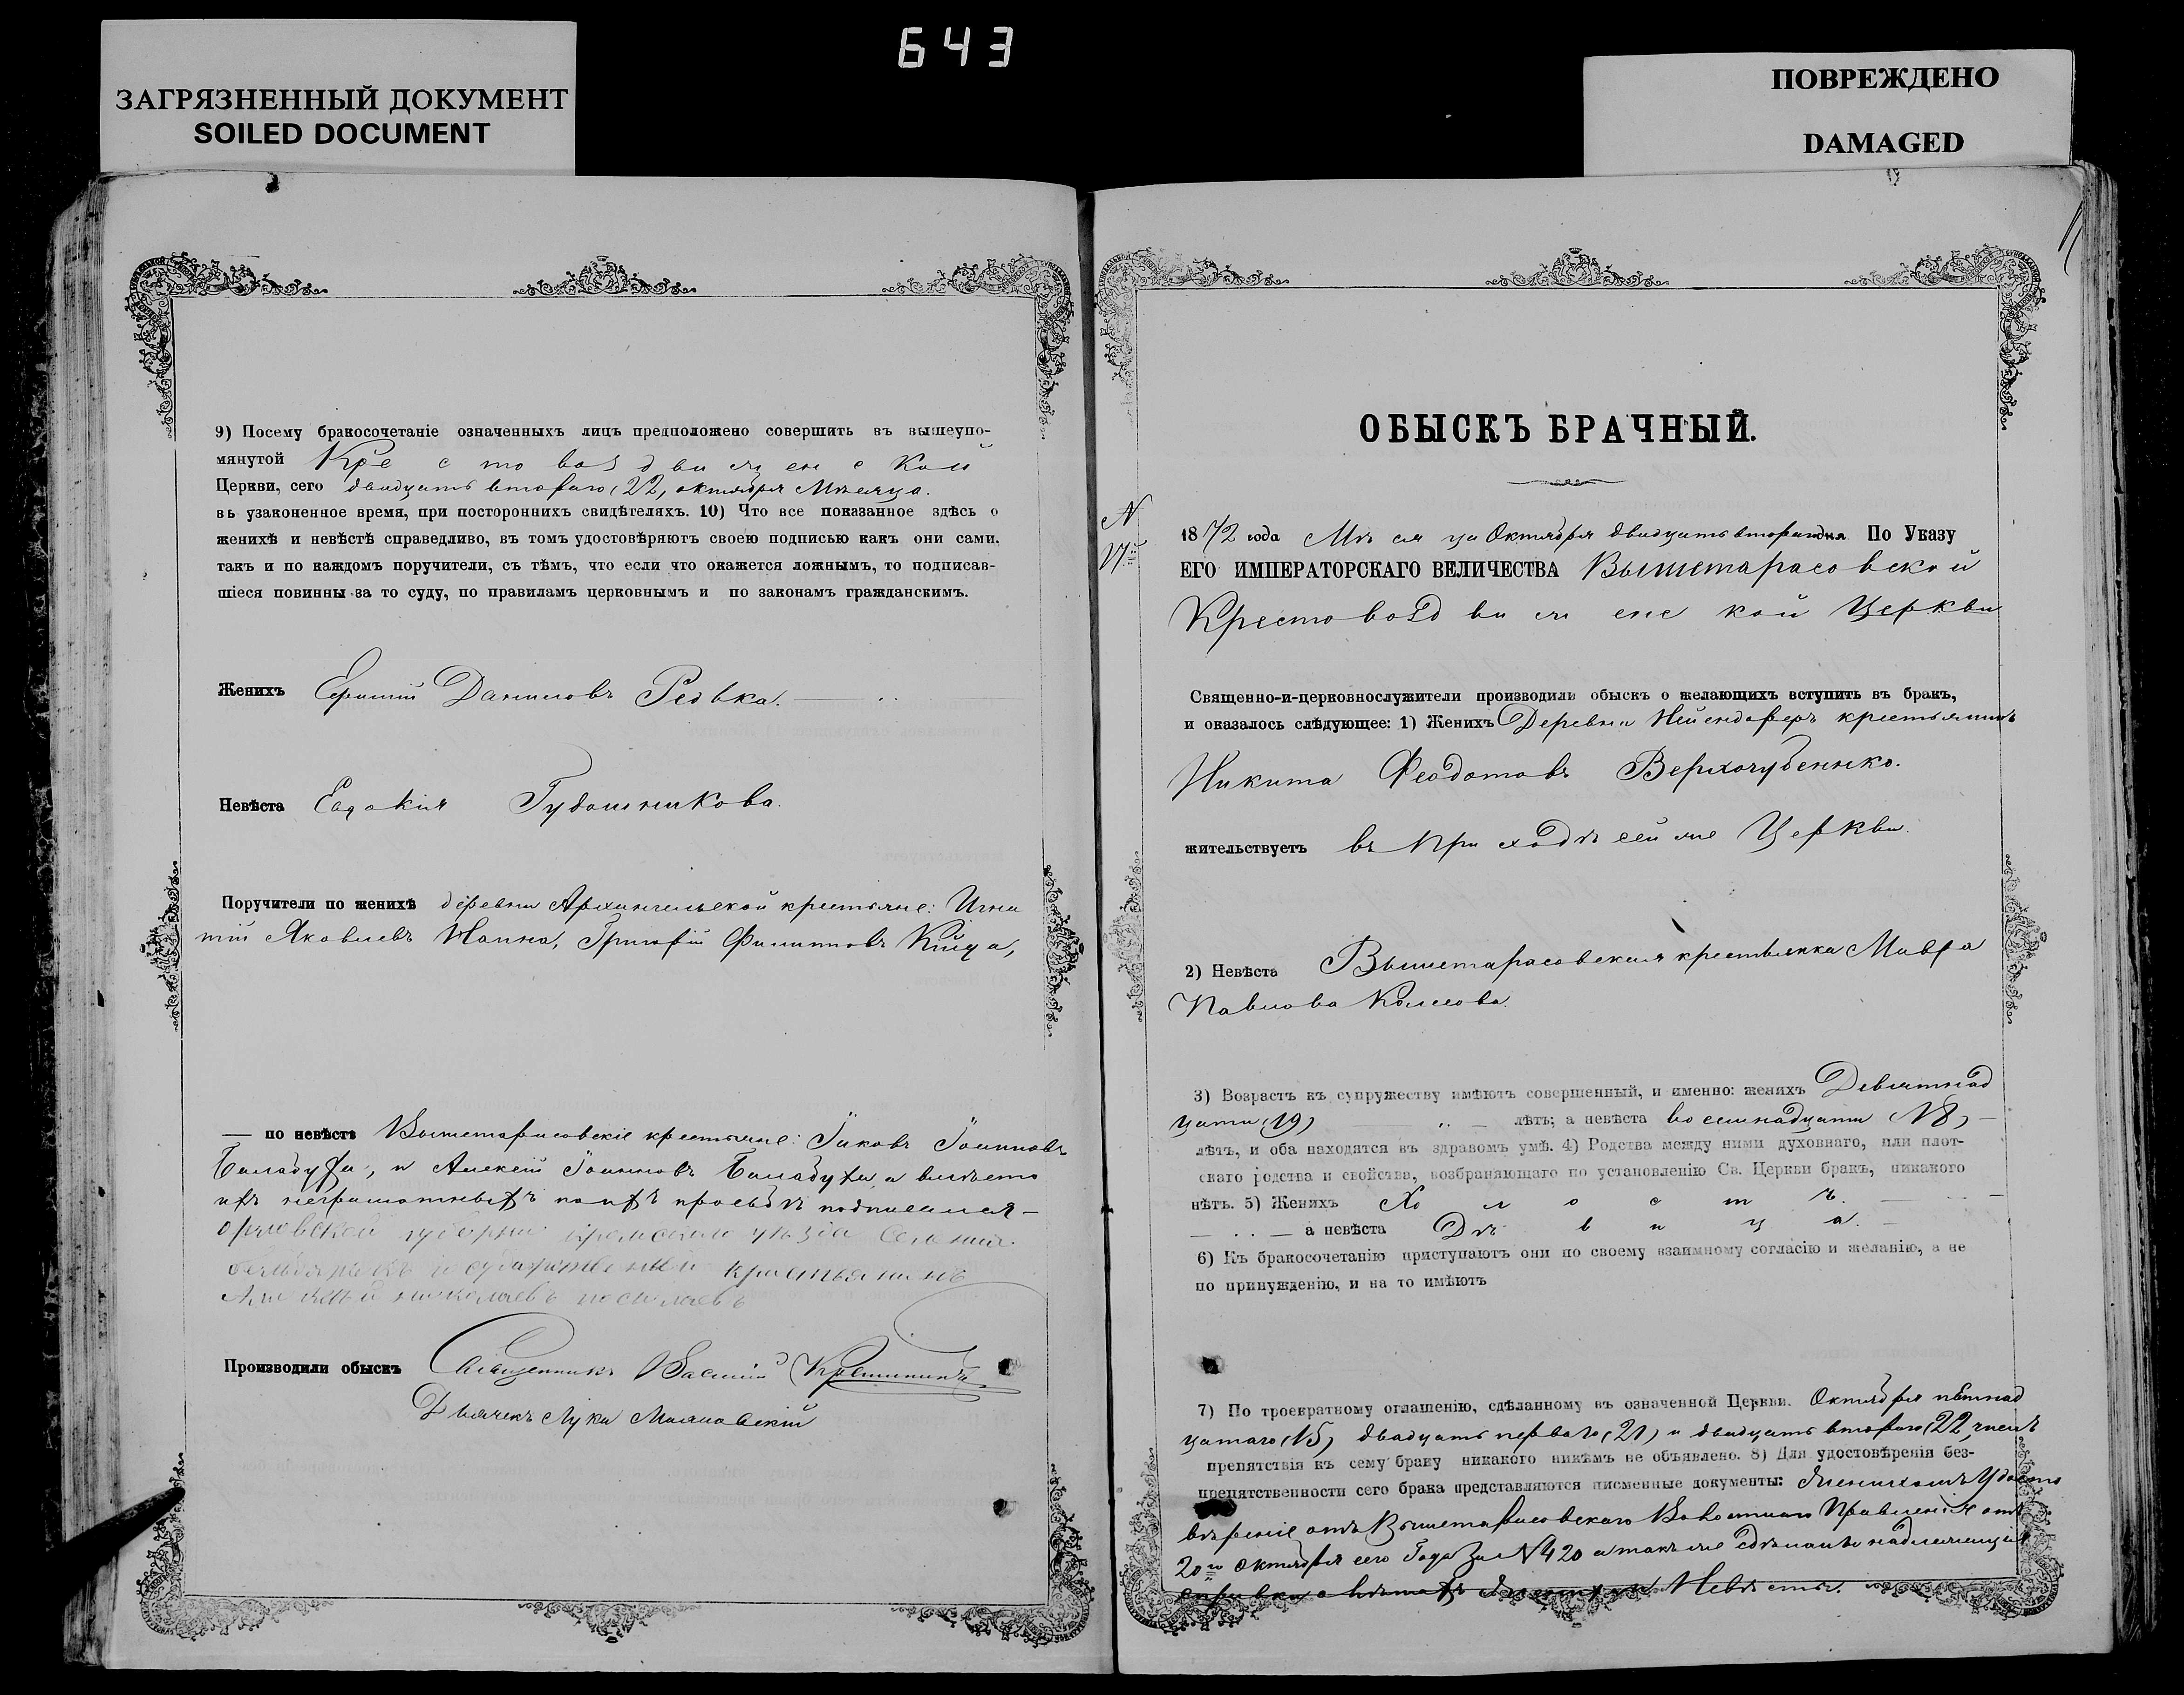 643
ЗАГРЯЗНЕННЫЙ ДОКУМЕНТ
SOILED DOCUMENT
ПОВРЕЖДЕНО
DAMAGED
9) Посему бракосочетаніе означенныхъ лицъ предположено совершить въ вышеупо-
мянутой Крестовоздвиженской
Церкви, сего двадцать втораго (22, октября Мѣсяца.
въ узаконенное время, при постороннихъ свидѣтеляхъ. 10) Что все показанное здѣсь о
женихѣ и невѣстѣ справедливо, въ томъ удостовѣряютъ своею подписью какъ они сами,
такъ и по каждомъ поручители, съ тѣмъ, что если что окажется ложнымъ, то подписав-
шіеся повинны за то суду, по правиламъ церковнымъ и по законамъ гражданскимъ.
Женихъ Ефимій Даниловъ Редька.
Невѣста Евдокія Гудошникова.
Поручители по женихѣ деревни Архангельской крестьяне: Игна
тій Яковлевъ Григорій Филипповъ
— по невѣстѣ Вышетарасовскіе крестьяне: Іаковъ Іоанновъ
Баладуха, и Алексѣй Іоанновъ Баладуха, а вмѣсто
ихъ неграмотныхъ по ихъ прозьбѣ подписался —
орловской губерніи уѣзда
крестьянинъ
николаевъ
Производили обыскъ Священникъ Василій
Дьячекъ Лука
ОБЫСКЪ БРАЧНЫЙ.
N
17й
1872 года Мѣсяца Октября двадцать втораго дня По Указу
ЕГО ИМПЕРАТОРСКАГО ВЕЛИЧЕСТВА Вышетарасовской
Крестовоздвиженской Церкви
Священно-и-церковнослужители производили обыскъ о желающихъ вступить въ бракъ,
и оказалось слѣдующее: 1) Женихъ Деревни Нейендоферъ крестьянинъ
Никита Феодотовъ Верхогубенько.
жительствуетъ въ Приходѣ сей же Церкви.
2) Невѣста Вышетарасовская крестьянка Мавра
Павлова
3) Возрастъ къ супружеству имѣютъ совершенный, и именно: женихъ Девятнад
цати (19) „ — лѣтъ; а невѣста восемнадцати (18) —
лѣтъ, и оба находятся въ здравомъ умѣ. 4) Родства между ними духовнаго, или плот-
скаго родства и свойства, возбраняющаго по установленію Св. Церкви бракъ, никакого
нѣтъ. 5) Женихъ Холостъ.
— „ — а невѣста Дѣвица. —
6) Къ бракосочетанію приступаютъ они по своему взаимному согласію и желанію, а не
по принужденію, и на то имѣютъ
7) По троекратному оглашенію, сдѣланному въ означенной Церкви. Октября пѣтнад
цатаго (15) двадцать перваго (21) и двадцать втораго (22, числъ
препятствія къ сему браку никакого никѣмъ не объявлено. 8) Для удостовѣренія без-
препятственности сего брака представляются писменные документы: Женихомъ Удосто
вѣреніе отъ Вышетарасовскаго Волостнаго Правленія отъ
20го октября сего Года За N 420 а также сдѣланы надлежащія
справки о лѣтахъ Жениха и Невѣсты.